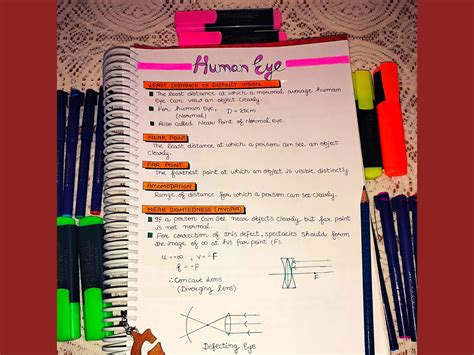 Human Eye
LEAST DISTANCE OF DISTINCT VISION
The least distance at which a normal average human
eye can view an object clearly.
For human eye, D = 25cm
(Normal)
Also called Near Point of Normal eye.
NEAR POINT
The least distance at which a person can see an object
clearly.
FAR POINT
The farthest point at which an object is visible distinctly
ACCOMODATION
Range of distance for which a person can see clearly.
NEAR SIGHTEDNESS (MYOPIA)
If a person can see near objects clearly but far point
is not normal.
For correction of this defect, spectacles should form
the image of ∞ at his far point (F).
u = -∞, v = -F
f = -F
∴ Concave lens
(Diverging lens)
F
Defecting Eye